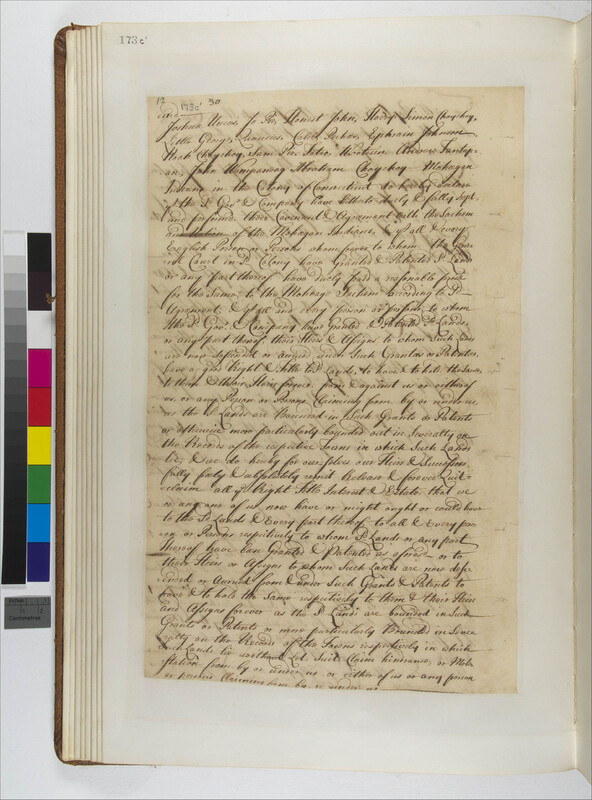 173c'
12 173c' 30
and
Joshua Uncas, Jo Pe, Honest John, Hary Simon Choychoy,
Little George, Caleb Pechen, Ephraim Johnson
Noah Choychoy, Sam Pie, Andrew Tantap-
an, John Wompanoag Abraham Choychoy Mohegan
Indians in the Colony of Connecticut do hereby Declare
the sd Govr & Company have hitherto duely & fully kept
and performed those Covenant & Agreament with the Sachem
and Nation of the Mohegan Indians, & yt all & every
English Person or Persons whomsoever to whom the Gene-
ral Court in sd Colony have Granted & Patented sd Lands
or any part thereof have duely paid a reasonable price
for the Same to the Mohegan Indians according to sd
Agreament, & yt all and every person or persons to whom
the sd Govr & Company have granted & Patented sd Lands
or any part thereof, their Heirs & Assigns to whom such Lands
are now descended or accrued under Such Grants or Patents,
have a good Right & title to sd Lands, to have & to hold the same
to them & their Heirs forever from & against us or either of
us or any Person or Persons Claiming from by or under us
as the sd Lands are Bounded in Such Grants or Patents
or otherwise more particularly bounded out in Severalty on
the Records of the respective Towns in which Such Lands
lie, & we do hereby for our selves our Heirs & Successors
fully freely & absolutely remit Release & forever Quit-
claim all ye Right Title Interest & Estate that we
or any one of us now have or might ought or could have
to the sd Lands & Every part thereof to all & Every per-
son or Persons respectively to whom sd Lands or any part
thereof have been Granted & Patented as aforesd or to
their Heirs or Assigns to whom Such Lands are now desc-
ended or Accrued from & under Such Grants & Patents to
have & to hold the Same respectively to them & their Heirs
and Assigns forever as the sd Lands are bounded in Such
Grants or Patents or more particularly Bounded in Seve-
ralty on the Records of the Towns respectively in which
Such Lands lie without Let Suit Claim hinderance or Mole-
station from by or under us or either of us or any person
or persons Claiming from by or under us
Centimetres